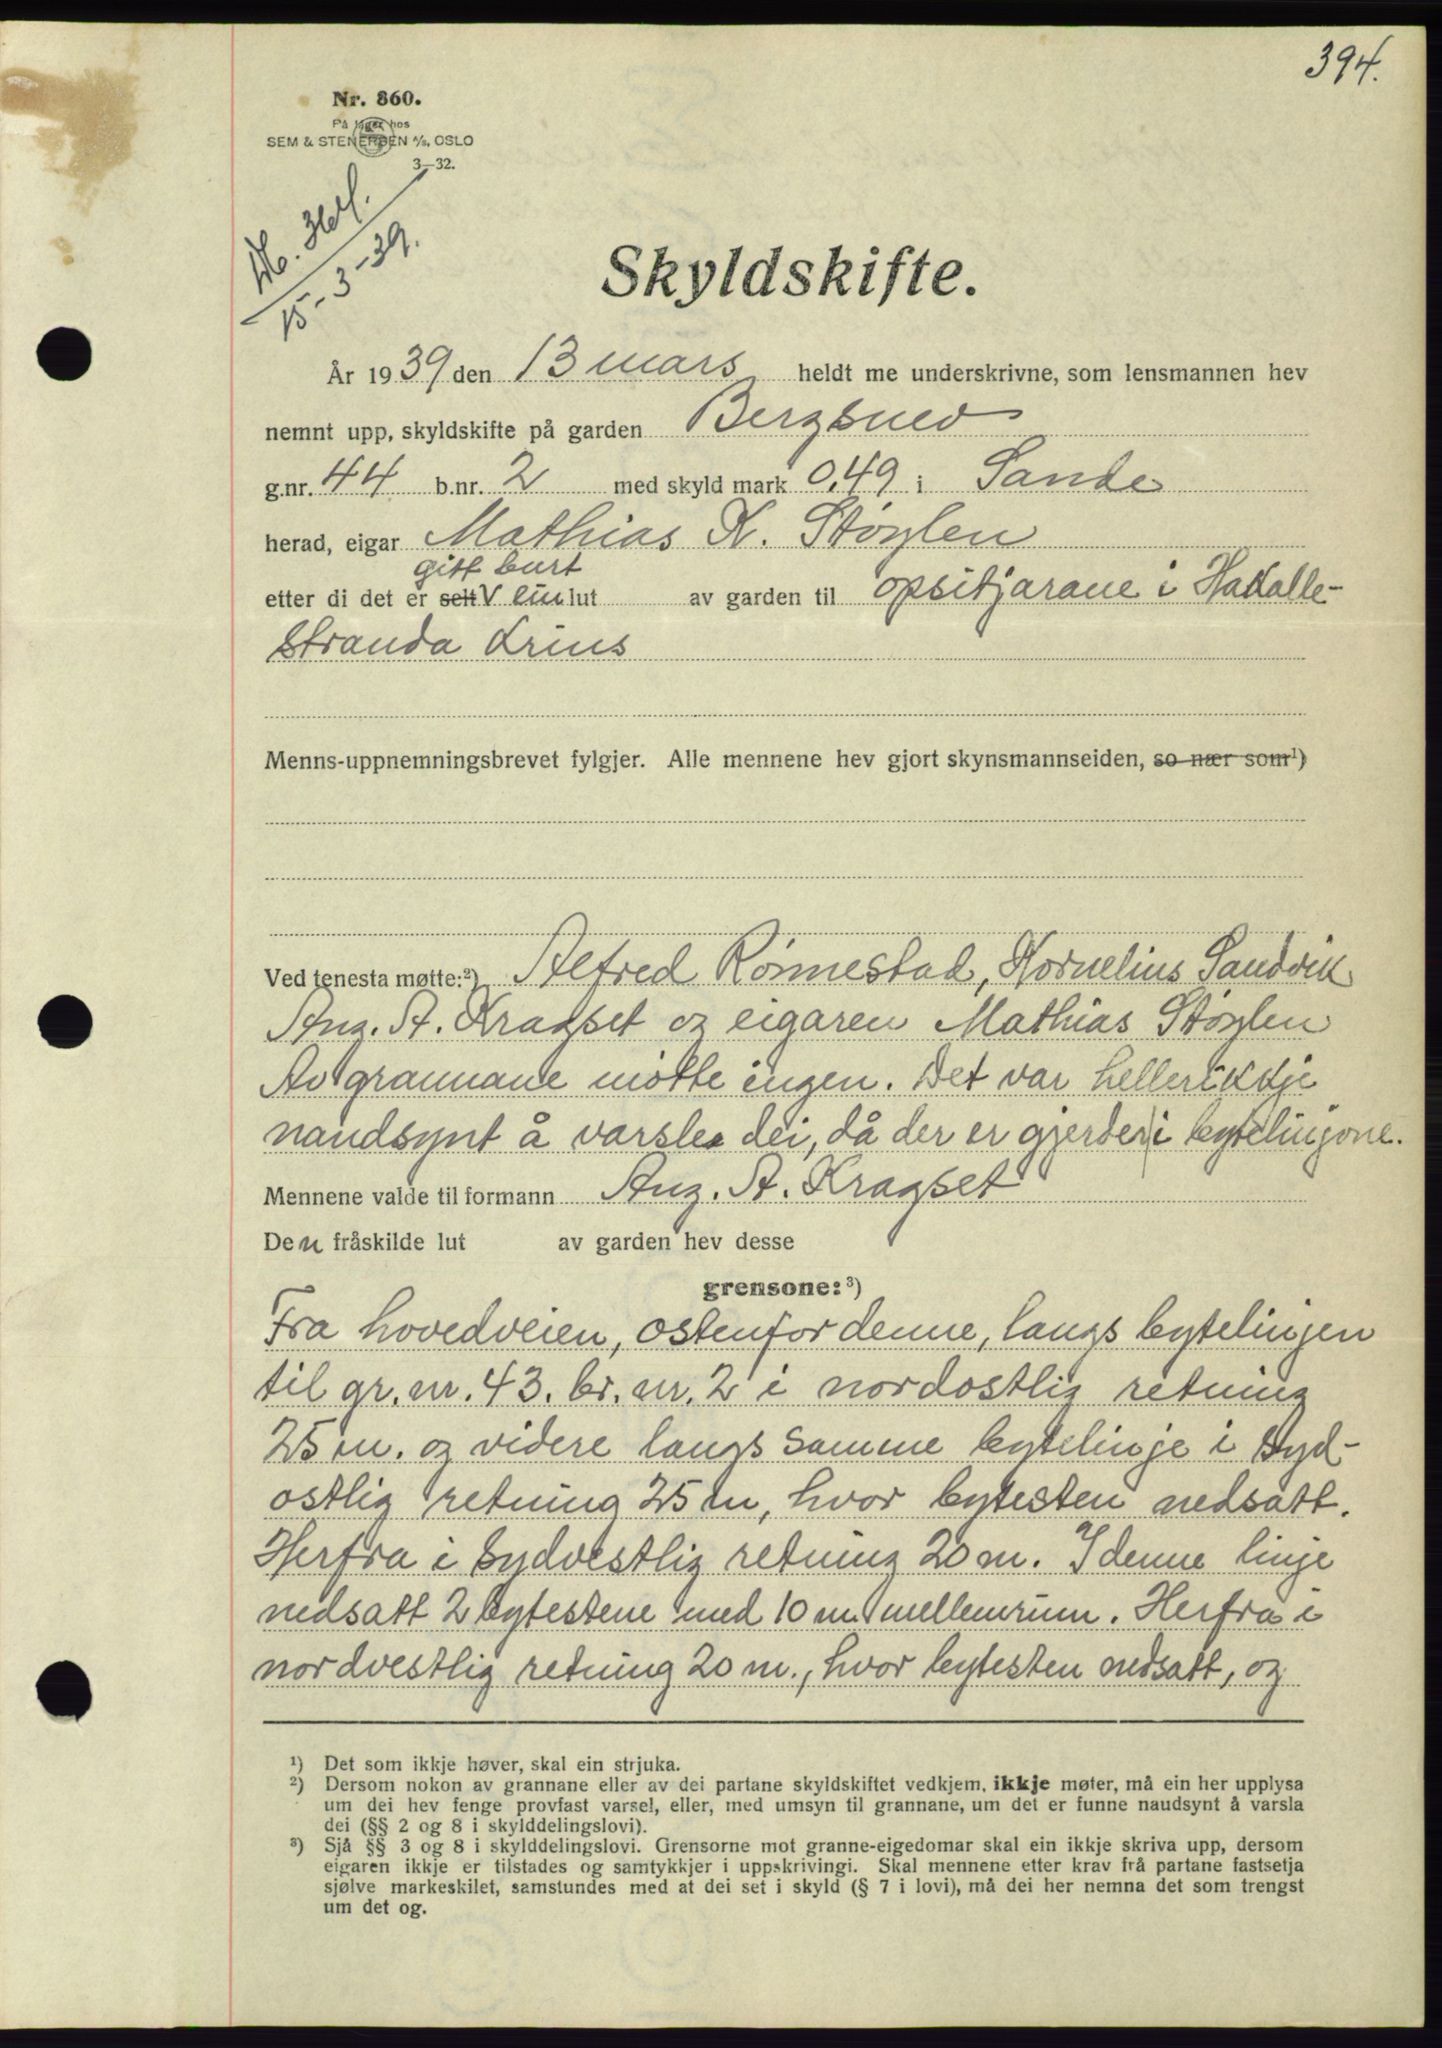 394.
Nr. 860.
På lager hos
SEM & STENERSEN A/S, OSLO
3—32.
15-3-39.
Skyldskifte.
År 1939 den 13 mars heldt me underskrivne, som lensmannen hev
nemnt upp, skyldskifte på garden Bergsnev
g.nr. 44 b.nr. 2 med skyld mark 0,49 i Sande
herad, eigar Mathias K. Støylen
gitt burt
etter di det er selt V ein lut av garden til opsitjarane i Hakalle-
stranda krins
Menns-uppnemningsbrevet fylgjer. Alle mennene hev gjort skynsmannseiden, so nær som¹)
Ved tenesta møtte:²) Alfred Rönnestad, Kornelius Sandvik
Aug. A. Kragset og eigaren Mathias Støylen
Av grannane møtte ingen. Det var heller ikkje
naudsynt å varsle dei, då der er gjerder i bytelinjone.
Mennene valde til formann Aug. A. Kragset
Den fråskilde lut av garden hev desse
grensone:³)
Fra hovedveien, ostenfor denne, langs bytelinjen
til gr. nr. 43. br. nr. 2 i nordostlig retning
25 m. og videre langs samme bytelinje i syd-
ostlig retning 25 m, hvor bytesten nedsatt.
Herfra i sydvestlig retning 20 m. I denne linje
nedsatt 2 bytestene med 10 m. mellemrum. Herfra i
nordvestlig retning 20 m., hvor bytesten nedsatt, og
¹) Det som ikkje høver, skal ein strjuka.
²) Dersom nokon av grannane eller av dei partane skyldskiftet vedkjem, ikkje møter, må ein her upplysa
um dei hev fenge provfast varsel, eller, med umsyn til grannane, um det er funne naudsynt å varsla
dei (§§ 2 og 8 i skylddelingslovi).
³) Sjå §§ 3 og 8 i skylddelingslovi. Grensorne mot granne-eigedomar skal ein ikkje skriva upp, dersom
eigaren ikkje er tilstades og samtykkjer i uppskrivingi. Skal mennene etter krav frå partane fastsetja
sjølve markeskilet, samstundes med at dei set i skyld (§ 7 i lovi), må dei her nemna det som trengst
um det og.